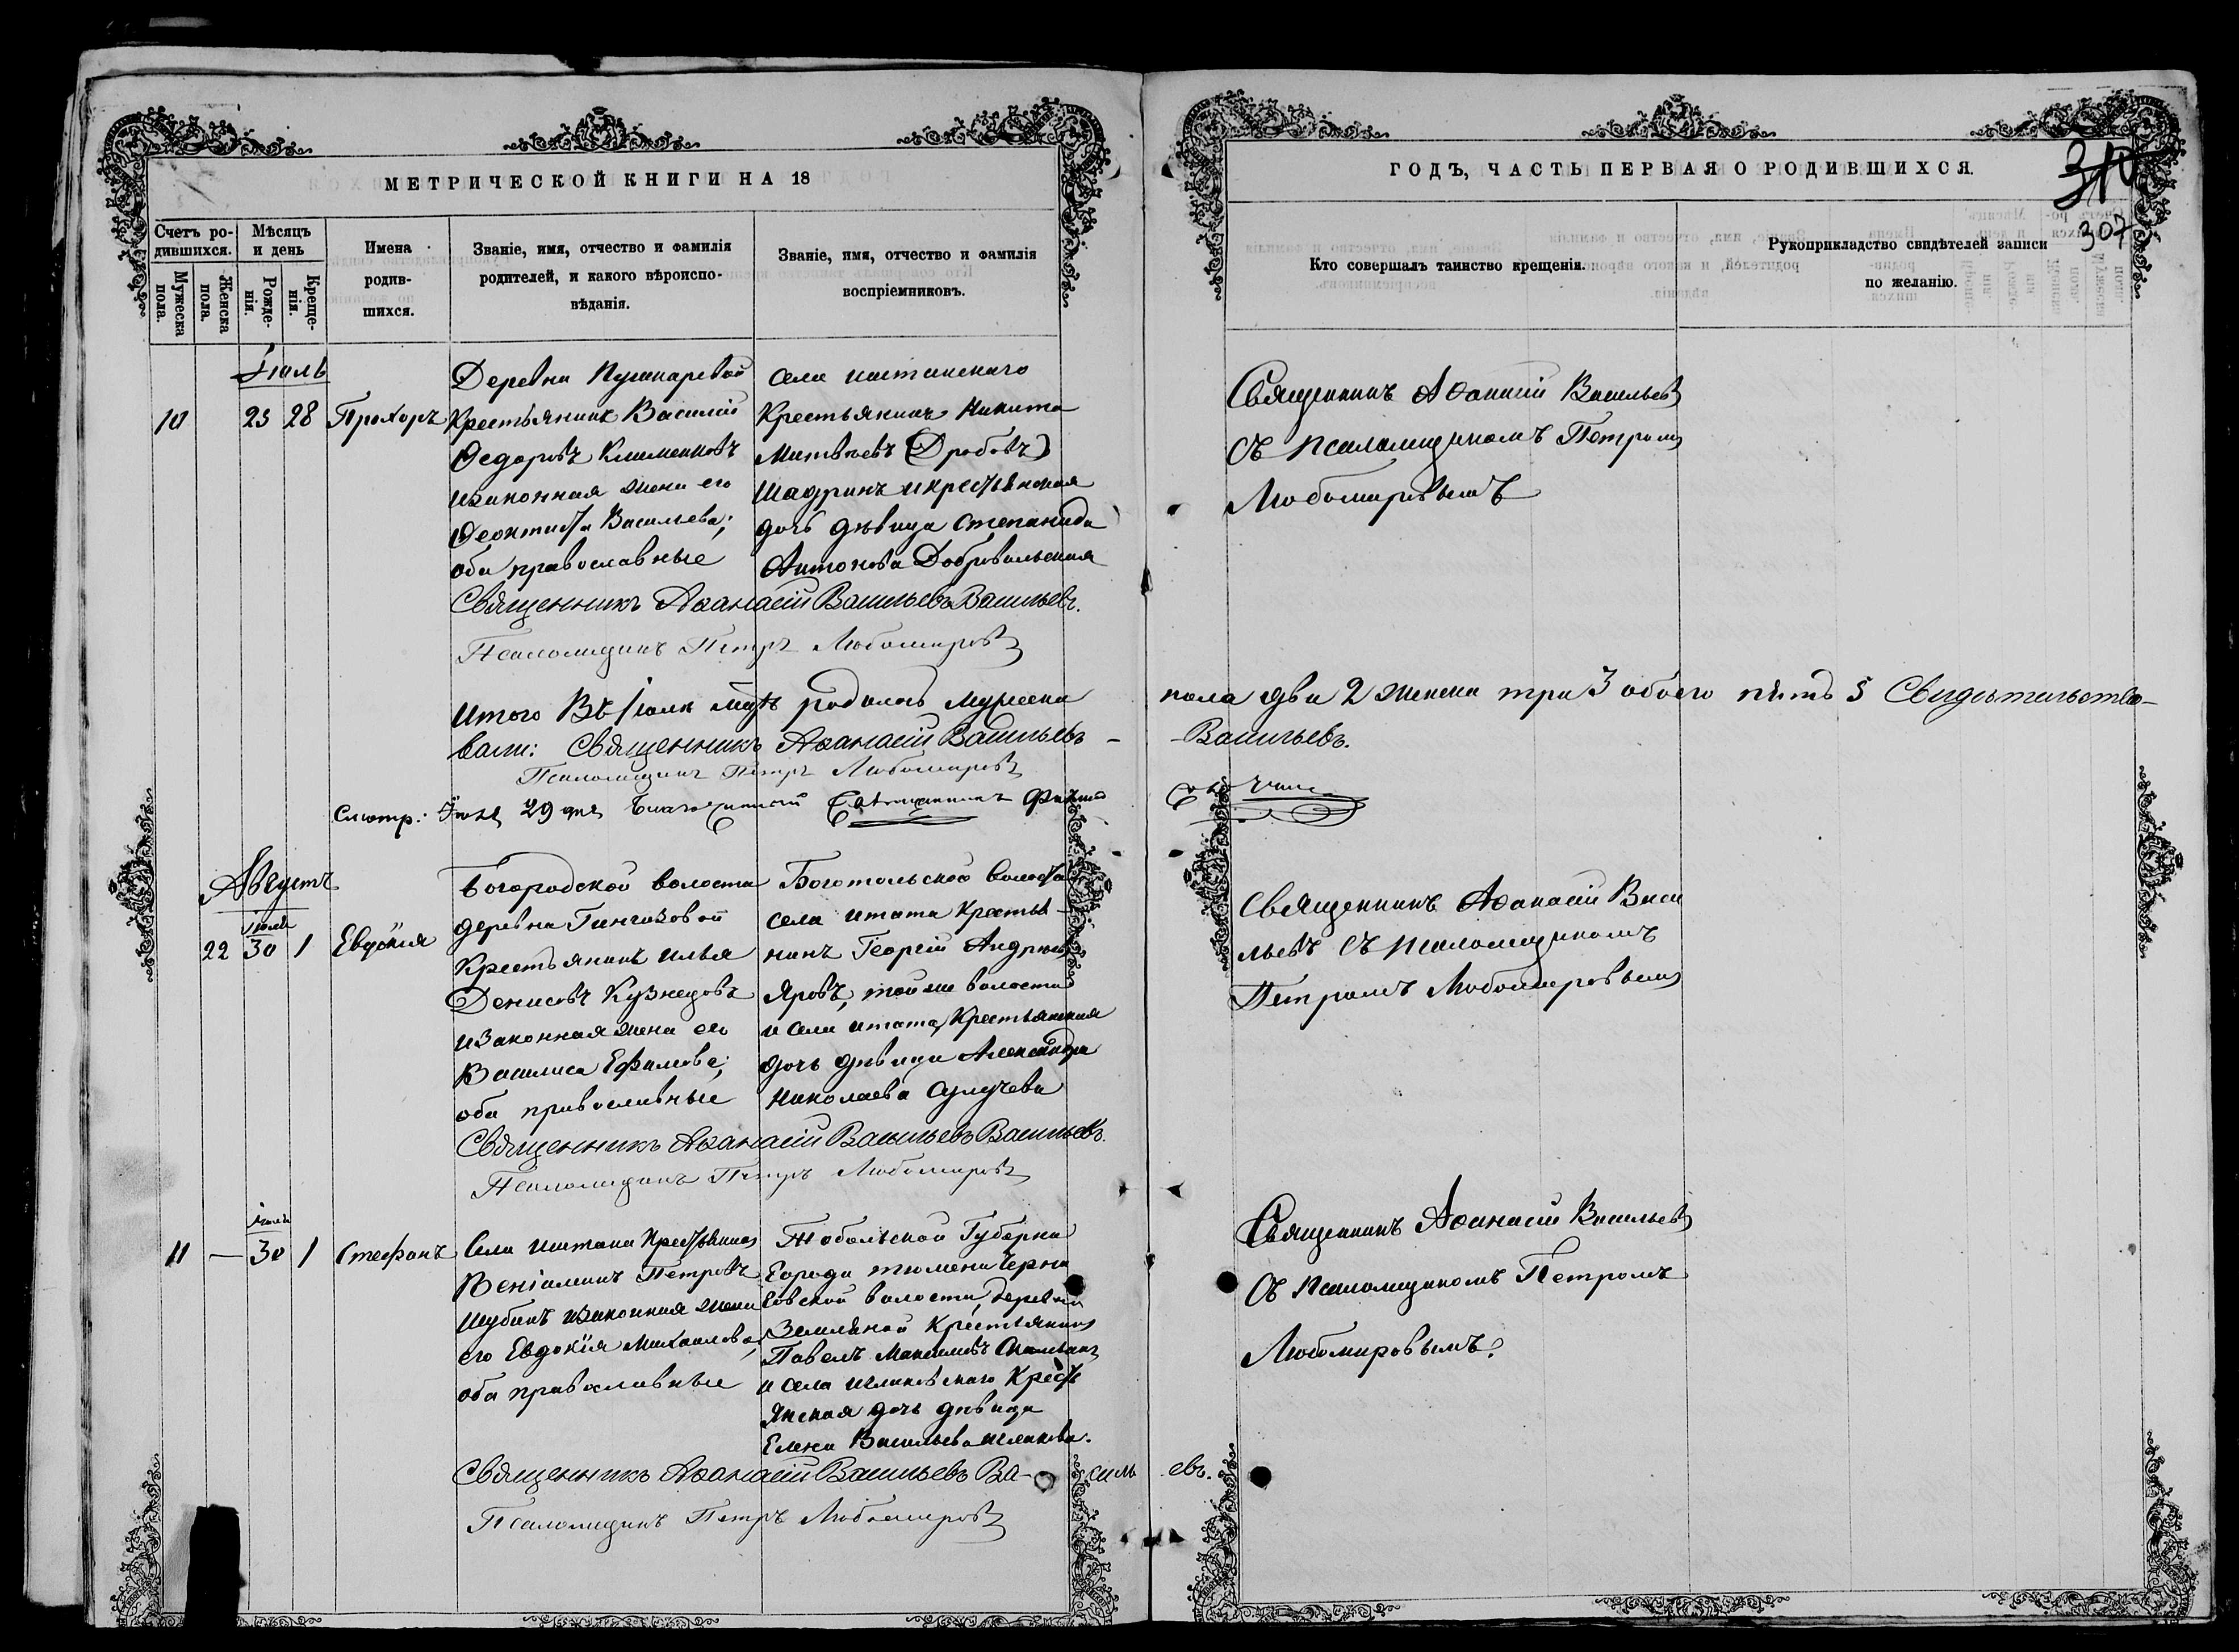 МЕТРИЧЕСКОЙ КНИГИ НА 18
Счетъ ро-
дившихся.
Мужеска
пола.
Женска
пола.
Мѣсяцъ
и день
Рожде-
нія.
Креще-
нія.
Имена
родив-
шихся.
Званіе, имя, отчество и фамилія
родителей, и какого вѣроиспо-
вѣданія.
Званіе, имя, отчество и фамилія
воспріемниковъ.
Іюль
10 25 28 Прохоръ
Деревни Пушкаревой
Крестьянинъ Василій
Ѳедоровъ Клименковъ
изаконная жена его
Ѳеоктиста Васильева;
оба православные
села
Крестьянинъ Никита
Матвѣевъ (Дробовъ)
Шадринъ икрестьянская
дочь дѣвица Степанида
Антонова Добровольская
Священникъ Аѳанасій Васильевъ Васильевъ.
Псаломщикъ Петръ Любомировъ
Итого Въ Іюлѣ родилось мужеска
вали: Священникъ Аѳанасій Васильевъ -
Псаломщикъ Петръ Любомировъ
29 дня Благочинный Священникъ
Августъ
Іюля
22 30 1 Евдокія
Богородской волости
деревни
Крестьянинъ Илья
Денисовъ Кузнецовъ
изаконная жена его
Василиса Ефимова;
оба православные
Боготольской волости
села Итата Крестья-
нинъ Георгій Андреевъ
Яровъ, тойже волости
и села Итата, Крестьянская
дочь дѣвица Александра
Николаева
Священникъ Аѳанасій Васильевъ Васильевъ.
Псаломщикъ Петръ Любомировъ
Іюля
11 — 30 1 Стефанъ
Села Крестьянинъ
Веніаминъ Петровъ
Шубинъ изаконная жена
его Евдокія Михаилова;
оба православные
Тобольской Губерни
города тюмени Черви
шовской волости, деревни
Земляной Крестьянинъ
Павелъ Максимовъ
и села Кресть
янская дочь дѣвица
Елена Васильева
Священникъ Аѳанасій Васильевъ Ва-силь евъ.
Псаломщикъ Петръ Любомировъ
ГОДЪ, ЧАСТЬ ПЕРВАЯ О РОДИВШИХСЯ.
310
307
Кто совершалъ таинство крещенія.
Рукоприкладство свидѣтелей записи
по желанію.
Священникъ Аѳанасій Васильевъ
Съ Псаломщикомъ Петромъ
Любомировымъ
пола два 2 женска три 3 обоего пять 5 Свидѣтельство-
- Васильевъ.
Священникъ Аѳанасій Васи
льевъ Съ Псаломщикомъ
Петромъ Любомировымъ
Священникъ Аѳанасій Васильевъ
Съ Псаломщикомъ Петромъ
Любомировымъ.